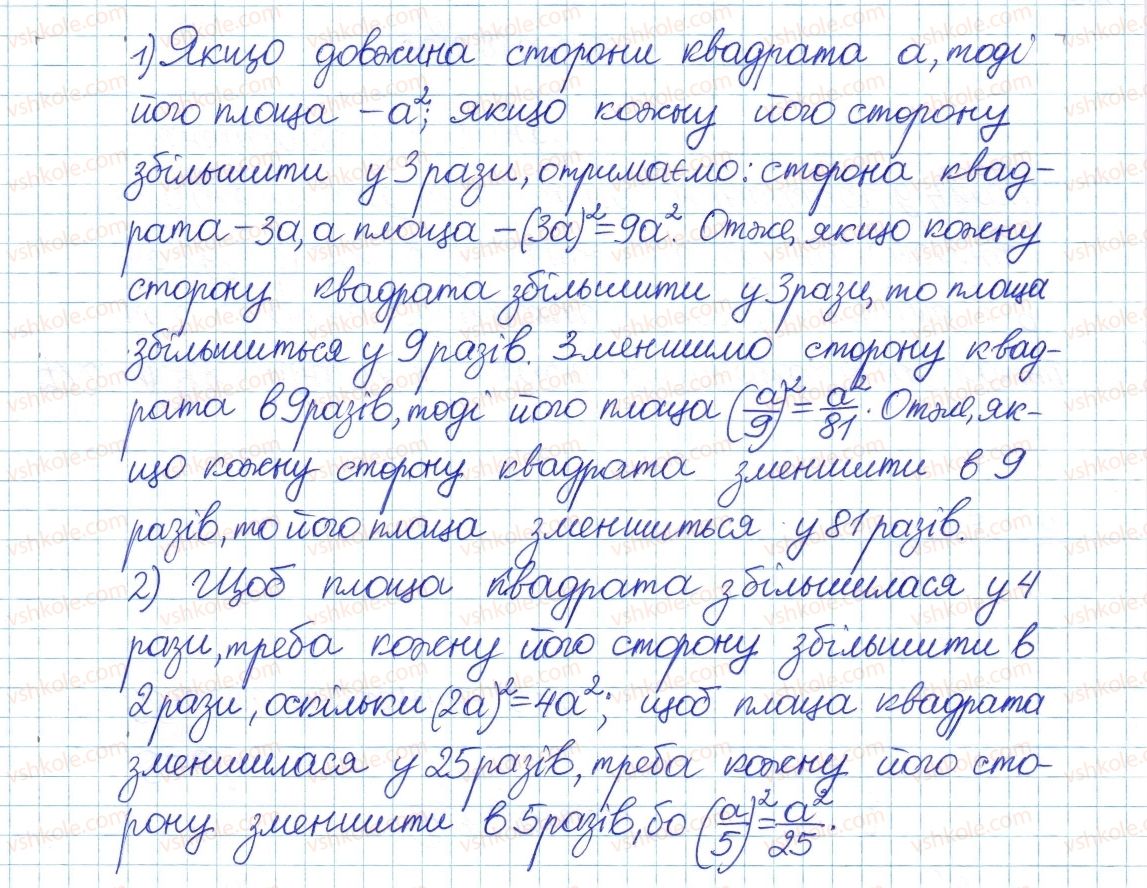 1) Якщо довжина сторони квадрата a, тоді
його площа – a²; якщо кожну його сторону
збільшити у 3 рази, отримаємо: сторона квад-
рата – 3a, а площа – (3a)² = 9a². Отже, якщо кожну
сторону квадрата збільшити у 3 рази, то площа
збільшиться у 9 разів. Зменшимо сторону квад-
рата в 9 разів, тоді його площа (a/9)² = a²/81. Отже, як-
що кожну сторону квадрата зменшити в 9
разів, то його площа зменшиться у 81 разів.
2) Щоб площа квадрата збільшилася у 4
рази, треба кожну його сторону збільшити в
2 рази, оскільки (2a)² = 4a²; щоб площа квадрата
зменшилася у 25 разів, треба кожну його сто-
рону зменшити в 5 разів, бо (a/5)² = a²/25.
vshkole.com